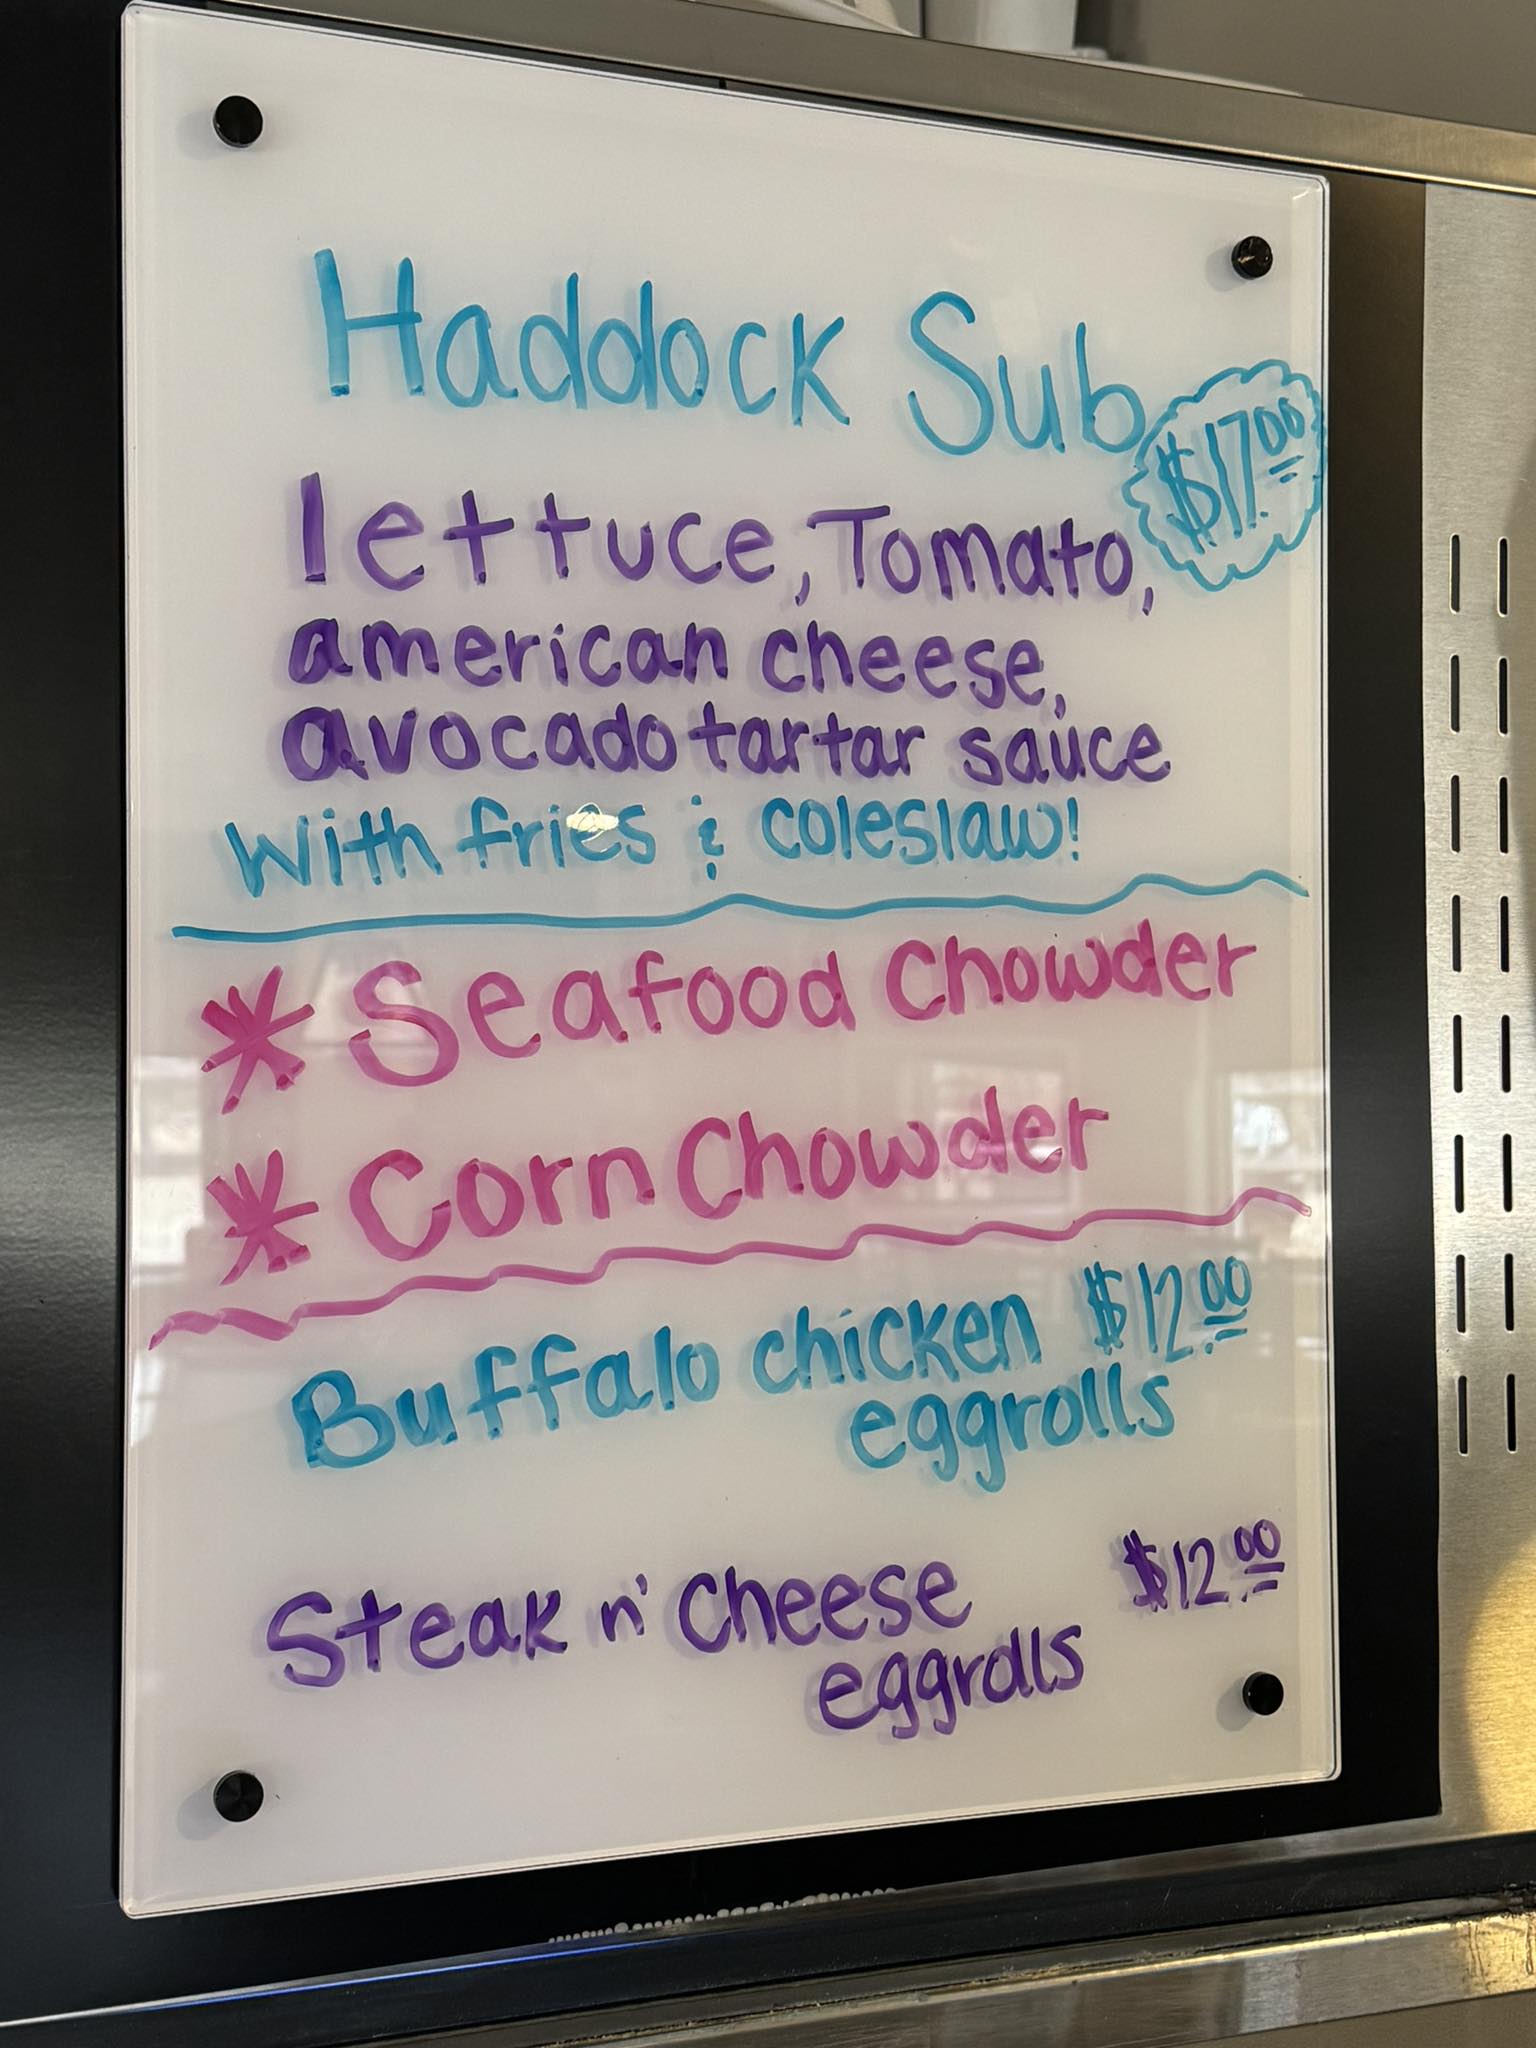 Haddock Sub $17.00
lettuce, Tomato,
american cheese,
avocado tartar sauce
With fries & coleslaw!
* Seafood Chowder
* Corn Chowder
Buffalo chicken $12.00
eggrolls
Steak n' Cheese $12.00
eggrolls